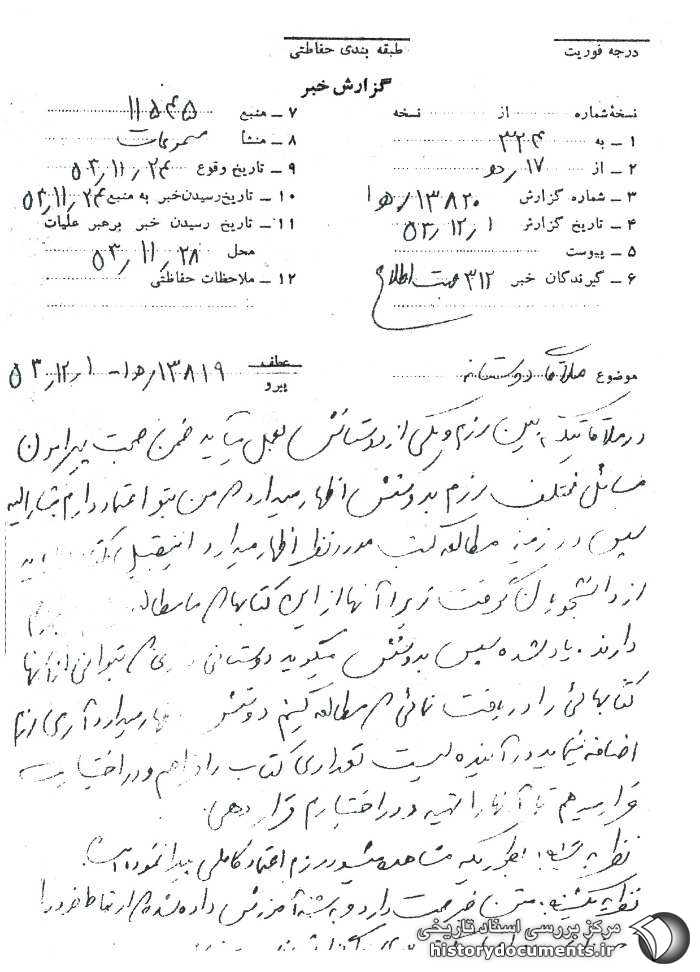 درجه فوریت
طبقه بندی حفاظتی
گزارش خبر
نسخهٔ شماره از نسخه
۱ ـ به ۳۲۴
۲ ـ از ۱۷ ه‍ د
۳ ـ شماره گزارش ۱۳۸۲۰ / ه‍ ۱
۴ ـ تاریخ گزارش ۵۳/۱۲/۱
۵ ـ پیوست
۶ ـ گیرندگان خبر ۳۱۲ جهت اطلاع
۷ ـ منبع ۱۱۵۴۵
۸ ـ منشأ مسموعات
۹ ـ تاریخ وقوع ۵۳/۱۱/۲۴
۱۰ ـ تاریخ رسیدن خبر به منبع ۵۳/۱۱/۲۴
۱۱ ـ تاریخ رسیدن خبر برهبر عملیات
محل ۵۳/۱۱/۲۸
۱۲ ـ ملاحظات حفاظتی
موضوع ملاقات دوستانه
عطف
پیرو
۱۳۸۱۹/ه‍ ۱ - ۵۳/۱۲/۱
در ملاقاتیکه بین رزم و یکی از دوستانش بعمل میآید ضمن صحبت پیرامون
مسائل مختلف رزم بدوستش اظهار میدارد من بتو اعتماد دارم مشارالیه
سپس در زمینه مطالعه کتب مورد نظر اظهار میدارد اینقبیل باید
از دانشجویان گرفت زیرا آنها از این کتابها
دارند. یادشده سپس بدوستش میگوید میتوانی از آنها
کتابهائی را دریافت نمائی مطالعه کنیم دوستش میدارد آری رزم
اضافه مینماید در آینده لیست تعدادی کتاب را فراهم و در اختیارت
قرار میدهم تا آنها را تهیه و در اختیارم قرار دهی.
نظریه شنبه: بطوریکه مشاهده میشود رزم اعتماد کاملی پیدا نموده است.
نظریه یکشنبه: متن خبر صحت دارد و به شنبه آموزش داده شده ارتباط خود را
مرکز بررسی اسناد تاریخی
historydocuments.ir